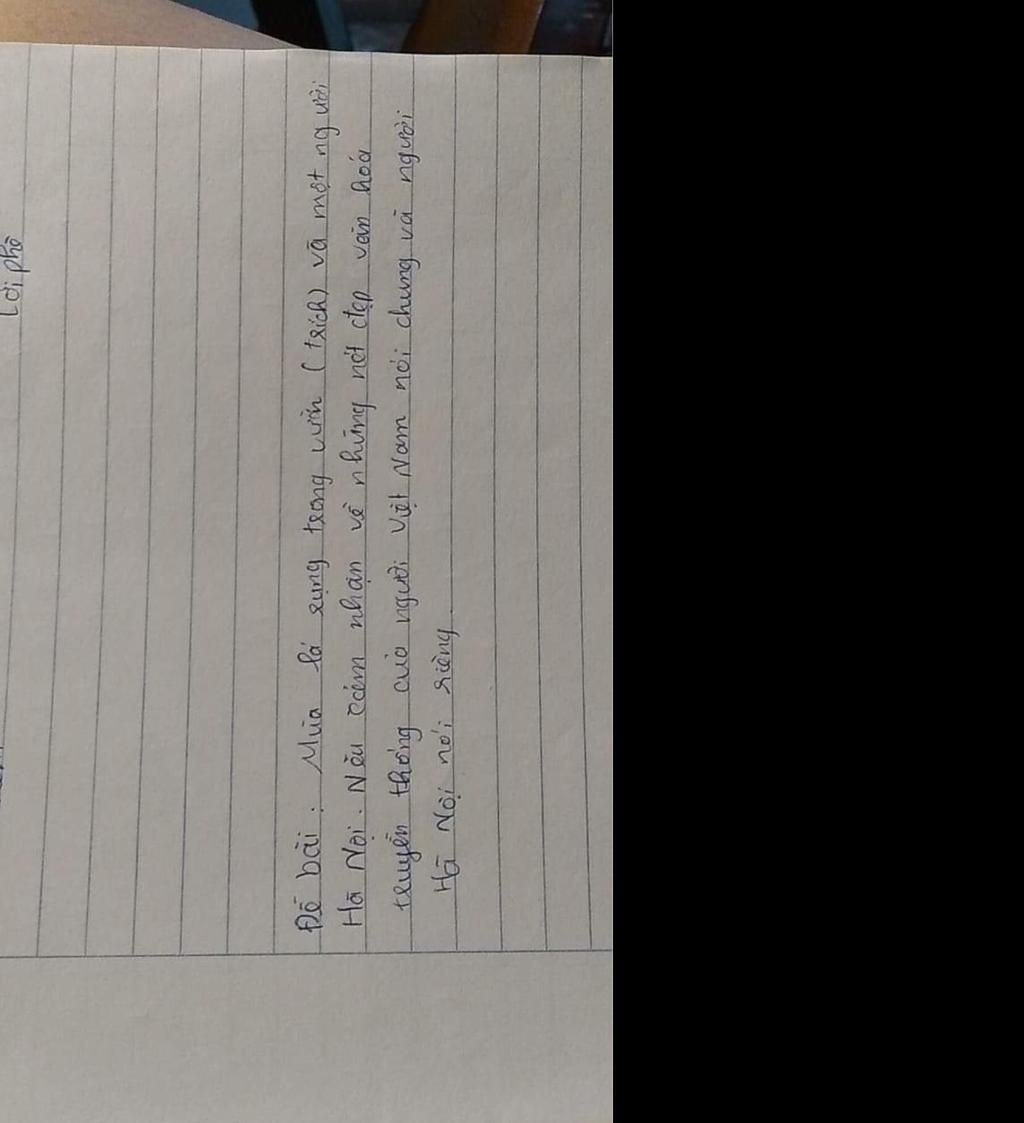 Lời phê
Đề bài : Mùa lá rụng trong vườn ( trích ) và một người
Hà Nội . Nêu cảm nhận về những nét đẹp văn hóa
truyền thống của người Việt Nam nói chung và người
Hà Nội nói riêng .